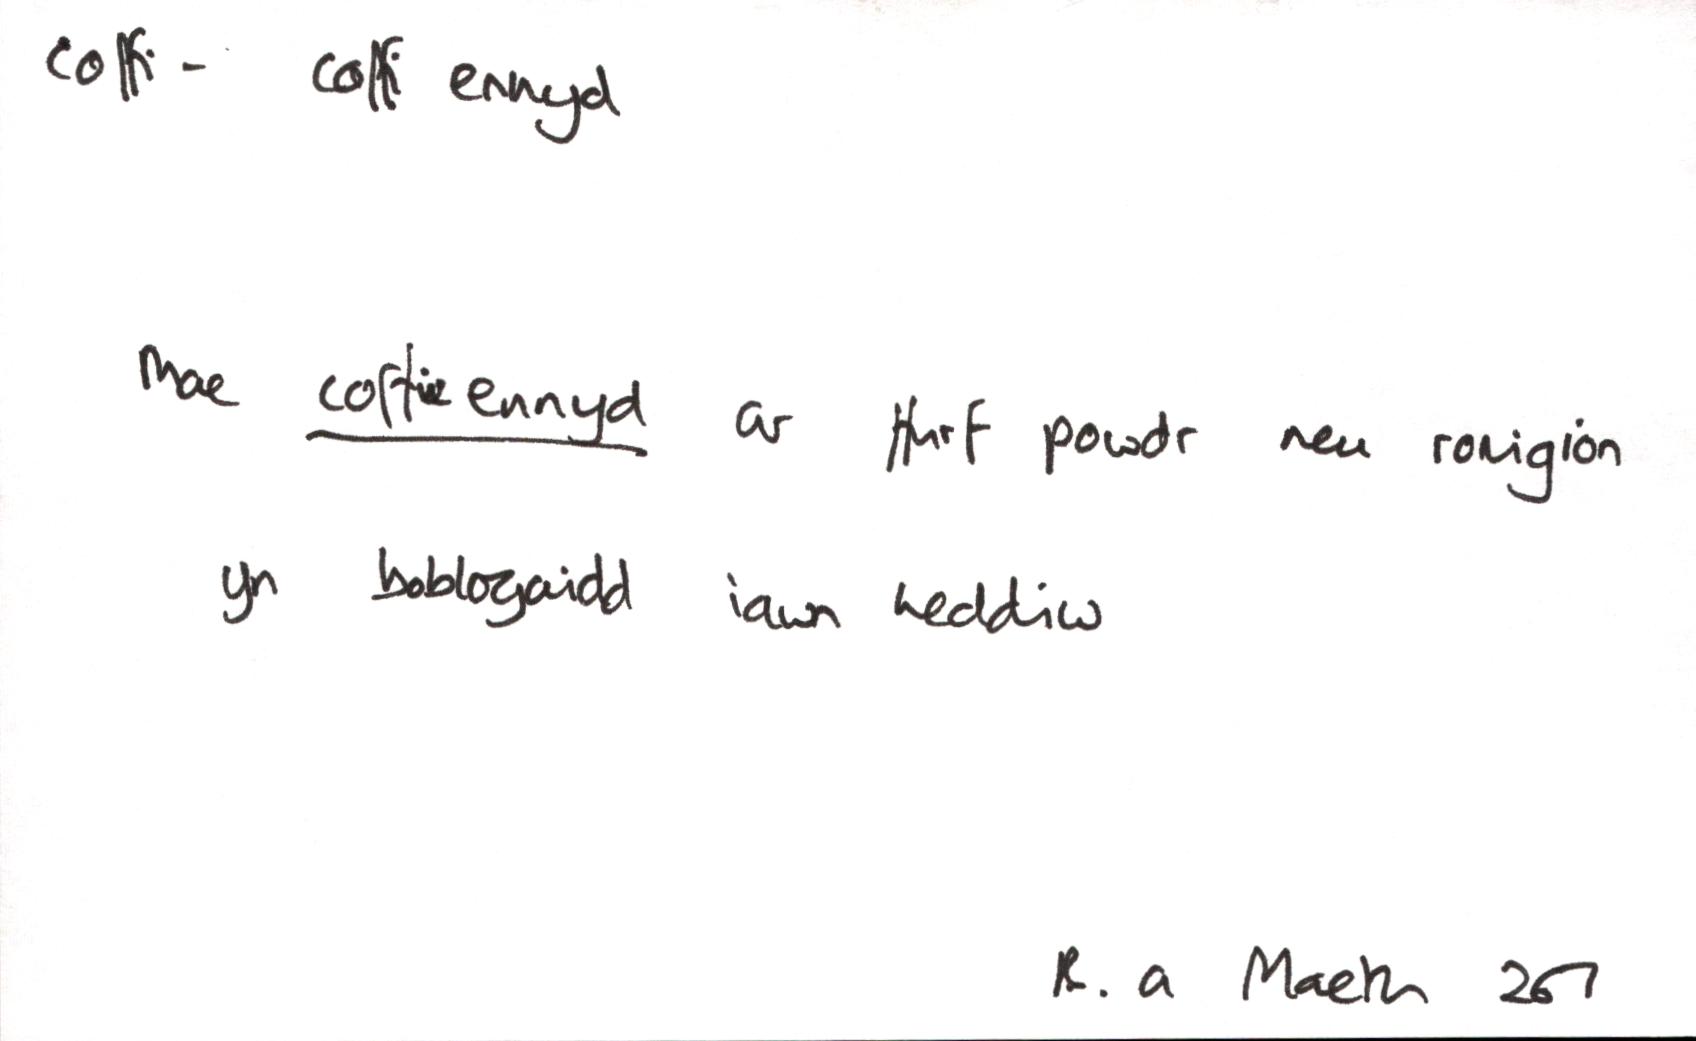 coffi - coffi ennyd
Mae coffi ennyd ar ffurf powdr neu ronigion
yn boblogaidd iawn heddiw
R. a Maeth 267